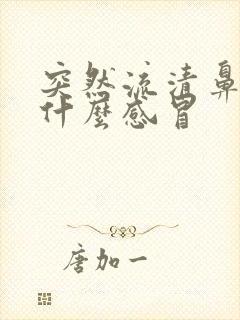 突然流清鼻
什麼感冒
唐加一